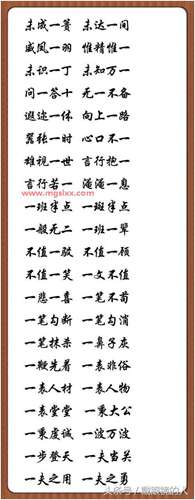 未成一篑 未达一间
威凤一羽 惟精惟一
未识一丁 未知万一
问一答十 无一不备
遐迩一体 向上一路
嚣张一时 心口不一
雄视一世 言行抱一
言行若一 淹淹一息
www.mgslxx.com
一班半点 一斑半点
一般无二 一班一辈
不值一驳 不值一顾
不值一笑 一文不值
一悲一喜 一笔不苟
一笔勾断 一笔勾消
一笔抹杀 一鼻子灰
一鞭先着 一表非俗
一表人材 一表人物
一表堂堂 一秉大公
一秉虔诚 一波万波
一步登天 一夫当关
一夫之用 一夫之勇